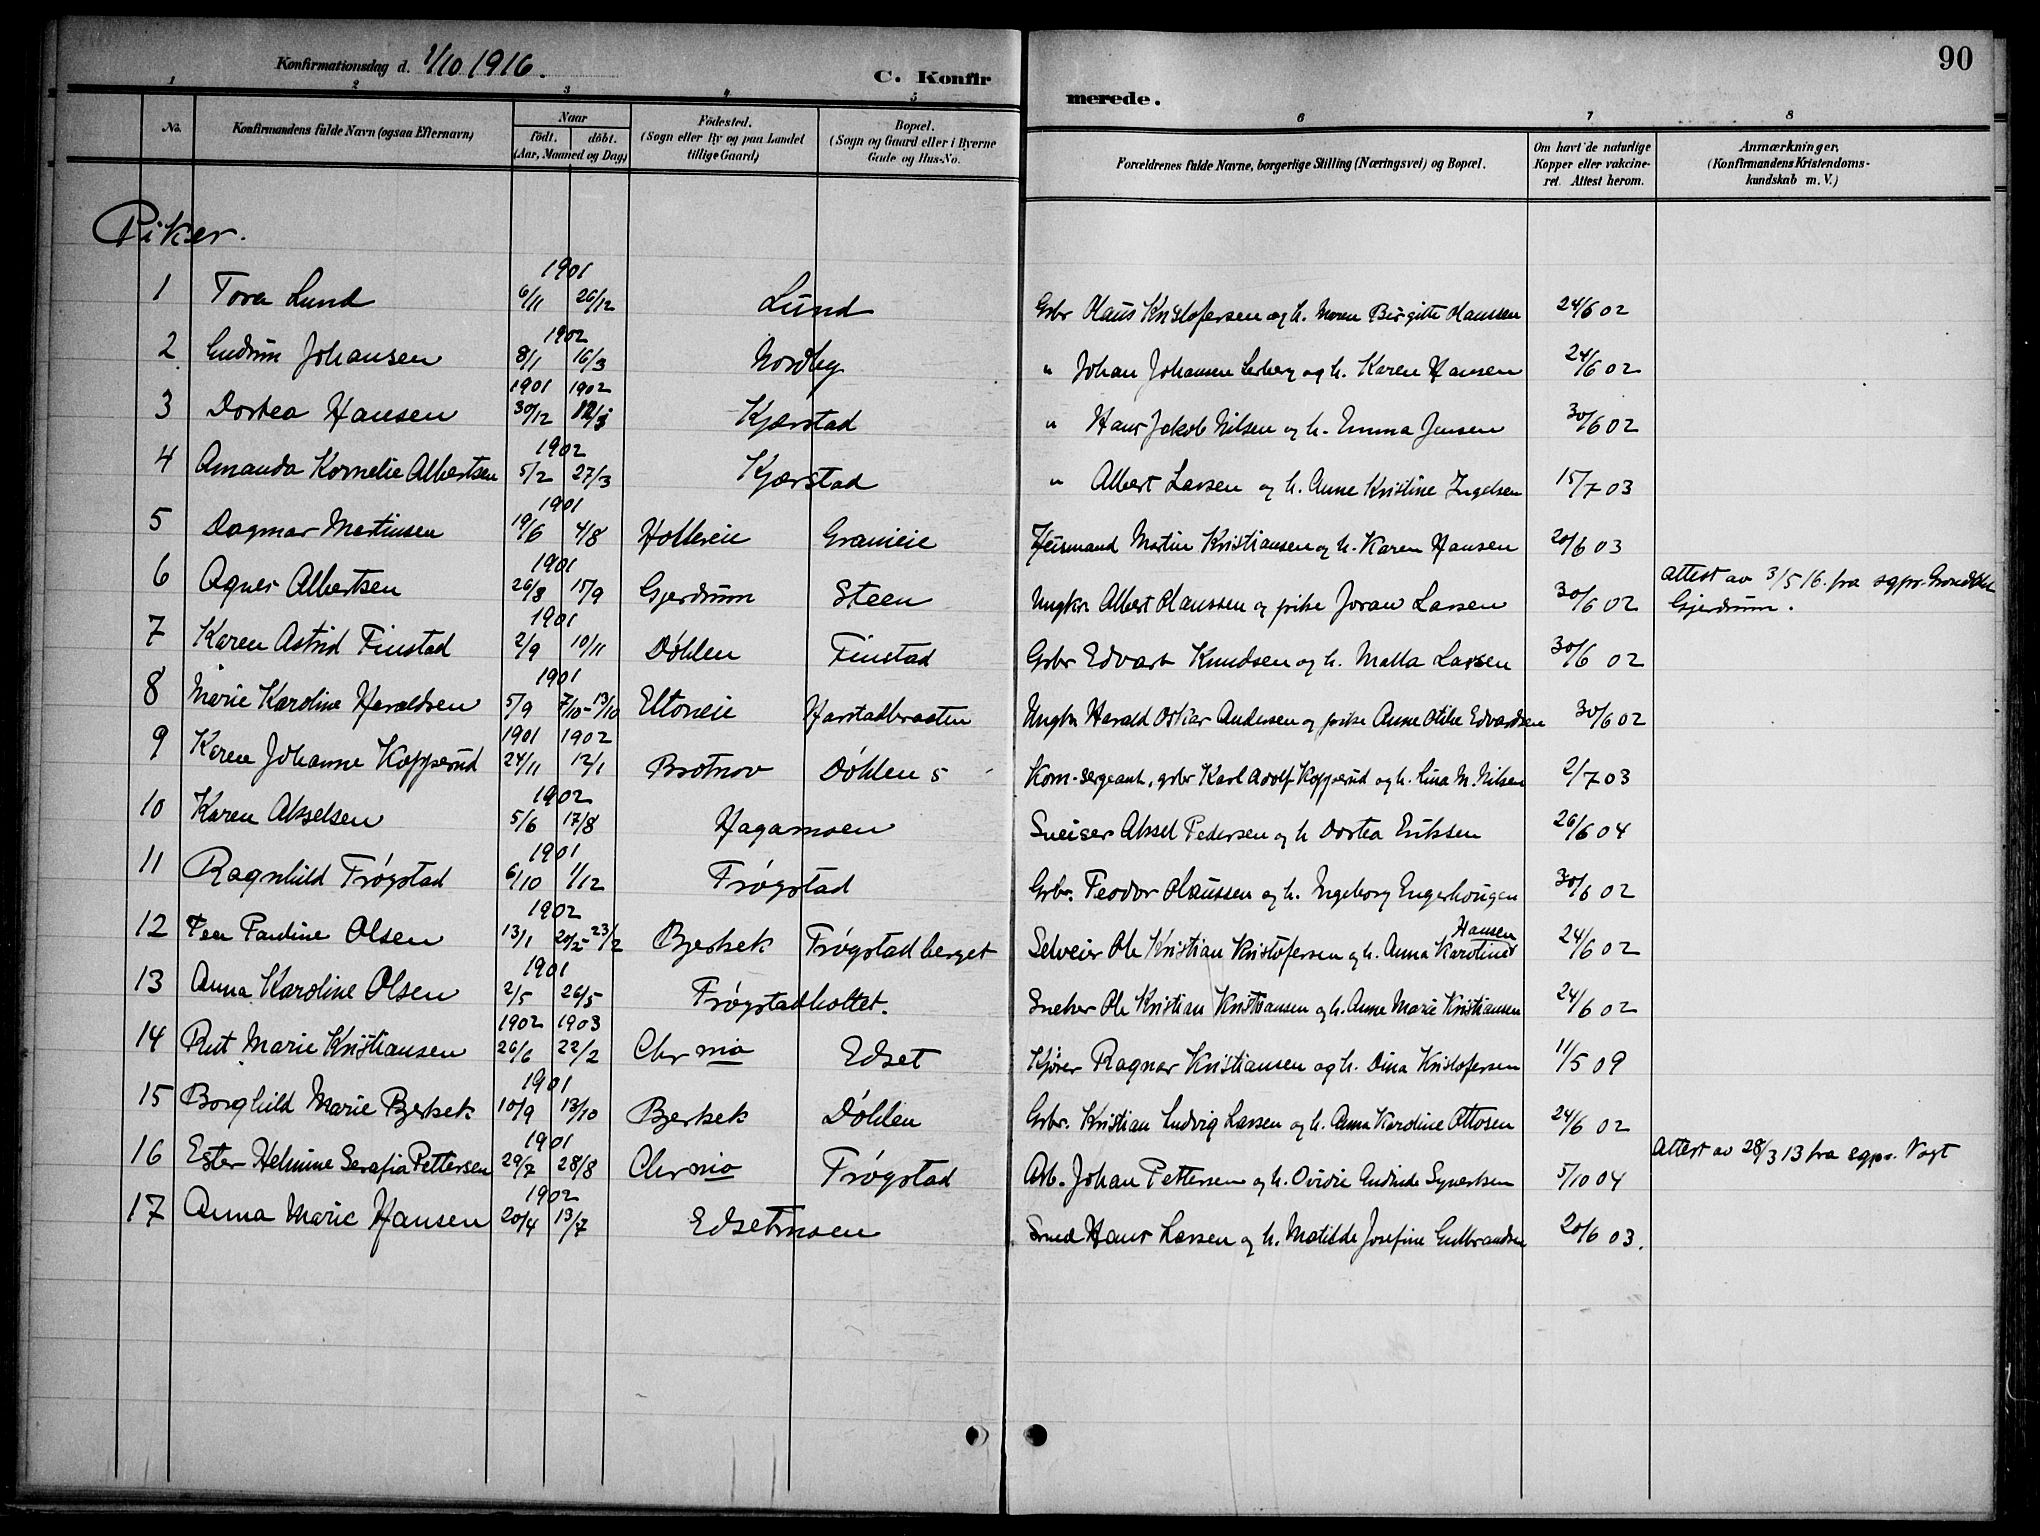 90
Konfirmationsdag d. 1/10 1916.
C. Konfirmerede.
1 2 3 4 5 6 7 8
No. Konfirmandens fulde Navn (ogsaa Efternavn) Naar født. døbt. (Aar, Maaned og Dag) Fødested. (Sogn eller By og paa Landet tillige Gaard) Bopæl. (Sogn og Gaard eller i Byerne Gade og Hus-No. Forældrenes fulde Navne, borgerlige Stilling (Næringsvei) og Bopæl. Om havt de naturlige Kopper eller vakcineret. Attest herom. Anmærkninger, (Konfirmandens Kristendomskundskab m. V.)
Piker.
1 Tora Lund 1901 6/11 26/12 Lund Gbr Hans Kristofersen og h. Maren Birgitte Hanssen 24/6 02
2 Gudrun Johansen 1902 8/1 16/3 Nordby " Johan Johansen Lerberg og h. Karen Hansen 24/6 02
3 Dortea Hansen 1901 30/12 1902 Kjærstad " Hans Jakob Nilsen og h. Emma Jensen 30/6 02
4 Amanda Kornelie Albertsen 1902 5/2 27/3 Kjærstad " Albert Larsen og h. Anne Kristine Ingelsen 15/7 03
5 Dagmar Martinsen 1901 19/6 4/8 Holtereie Graneie Husmand Martin Kristiansen og h. Karen Hansen 20/6 03
6 Agnes Albertsen 1901 26/8 15/9 Gjerdrum Steen Ungkr Albert Hanssen og pike Joran Larsen 30/6 02 Attest av 3/5 16. fra sgpr. Gjerdrum.
7 Karen Astrid Finstad 1901 2/9 10/11 Døhlen Finstad Gbr Edvart Knudsen og h. Malla Larsen 30/6 02
8 Marie Karoline Haraldsen 1901 5/9 7/10-13/10 Eltoneie Harstadbraaten Ungkr Harald Oskar Andersen og pike Anne Otilie Edvardsen 30/6 02
9 Karen Johanne Kopperud 1901 24/11 1902 12/1 Brotnov Døhlen s Korn-sergeant, gbr Karl Adolf Kopperud og h. Lina M. Nilsen 2/7 03
10 Karen Akselsen 1902 5/6 17/8 Hagamoen Sveiser Aksel Pedersen og h Dortea Eriksen 26/6 04
11 Ragnhild Frøgstad 1901 6/10 1/12 Frøgstad Gbr. Teodor Hanssen og h. Ingeborg Engerhougen 30/6 02
12 Pauline Olsen 1902 13/1 23/2 Bjerkek Frøgstadberget Selveier Ole Kristian Kristofersen og h. Anna Karoline Hansen 24/6 02
13 Anna Karoline Olsen 1901 2/5 26/5 Frøgstadholtet. Snekker Ole Kristian Kristiansen og h. Anne Marie Kristiansen 24/6 02
14 Rut Marie Kristiansen 1902 26/6 1903 22/2 Chrnia Edset Kjører Ragnar Kristiansen og h. Dina Kristofersen 11/5 09
15 Borghild Marie Bjerkek 1901 10/9 13/10 Bjerkek Døhlen Gbr. Kristian Ludvig Larsen og h. Anna Karoline Ottosen 24/6 02
16 Ester Helmine Serafia Pettersen 1901 29/7 28/8 Chrnia Frøgstad Arb. Johan Pettersen og h. Syvertsen 5/10 04 Attest av 28/3 13 fra sgpr. Vogt
17 Anna Marie Hansen 1902 20/4 13/7 Edsetmoen Smed Hans Larsen og h. Matilde Josefine Gulbrandsen 20/6 03.